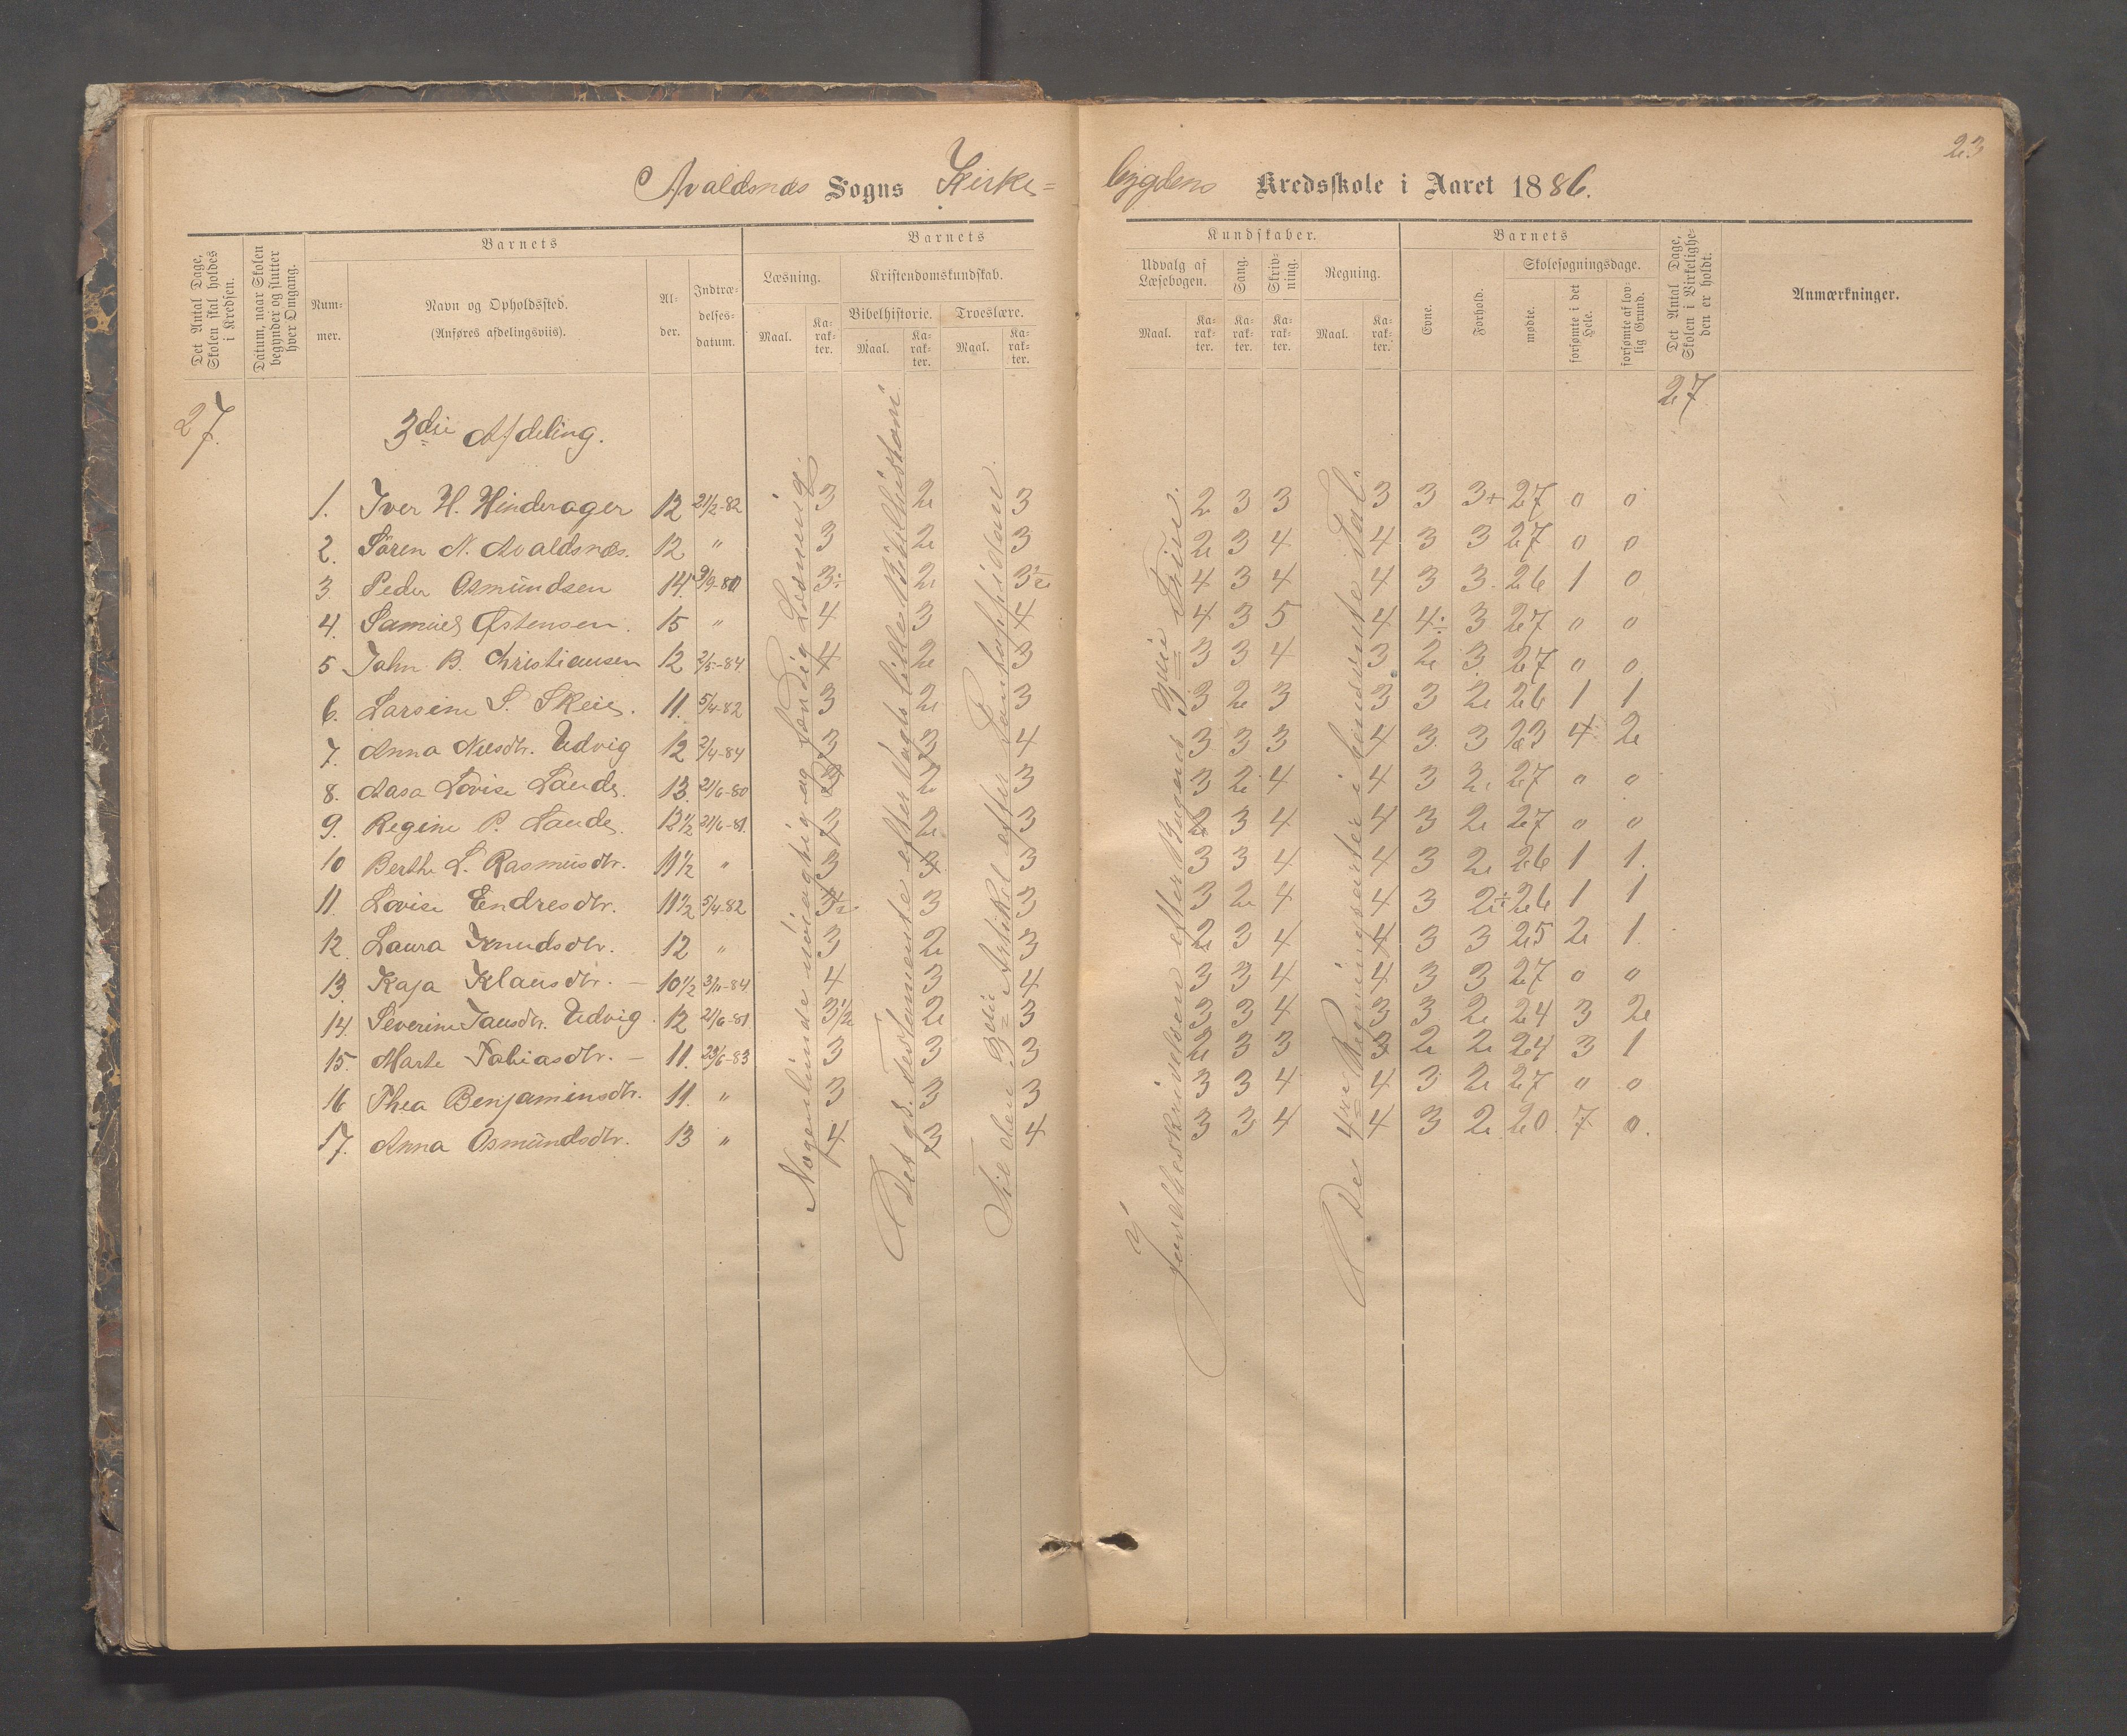 23
Avaldsnes Sogns Kirke=
bygdens Kredsskole i Aaret 1886.
Det Antal Dage, Skolen skal holdes i Kredsen.
Datum, naar Skolen begynder og slutter hver Omgang.
Barnets
Num-mer.
Navn og Opholdssted. (Anføres afdelingsviis).
Al-der.
Indtræ-delses-datum.
Barnets
Læsning.
Maal.
Ka-rak-ter.
Kristendomskundskab.
Bibelhistorie.
Troeslære.
Maal.
Ka-rak-ter.
Maal.
Ka-rak-ter.
Kundskaber.
Udvalg af Læsebogen.
Sang.
Skriv-ning.
Regning.
Maal.
Ka-rak-ter.
Ka-rak-ter.
Ka-rak-ter.
Maal.
Ka-rak-ter.
Barnets
Evne.
Forhold.
Skolesøgningsdage.
mødte.
forsømte i det Hele.
forsømte af lov-lig Grund.
Det Antal Dage, Skolen i Virkelighe-den er holdt.
Anmærkninger.
27.
27
3die Afdeling.
1. Iver H. Hinderager 12 21/2-82 3 2 3 2 3 3 3 3 3+ 27 0 0
2. Sören N. Avaldsnes. 12 " 3 2 3 2 3 4 4 3 3 27 0 0
3 Peder Osmundsen 14. 9/9-80 3÷ 2 3½ 4 3 4 4 3 3. 26 1 0
4. Samuel Østensen. 15 " 4 3 4 4 3 5 4 4÷ 3 27 0 0
5 John B. Christiansen 12 2/5-84 4 2 3 3 3 4 3 2 3 27 0 0
6. Larsine S. Skeie. 11. 5/4-82 3 2 3 3 2 3 3 3 2 26 1 1
7. Anna Nilsdtr. Udvig 12 2/4-84 3 3 4 3 3 3 4 3 3 23 4 2
8. Aasa Lovise Lande. 13. 21/6-80 2 3 3 2 4 4 3 2 27 0 0
9. Regine P. Lande. 12½ 21/6-81. 3 2 3 2 3 4 4 3 2 27 0 0
10 Berthe L. Rasmusdtr. 11½ " 3 3 3 3 3 4 4 3 2 26 1 1.
11. Lovise Endresdtr. 11½ 5/4-82 3½ 3 3 3 2 4 4 3 2÷ 26 1 1
12. Laura Knudsdtr. 12 " 3 2 3 2 3 4 4 3 3 25 2 1.
13. Kaja Klausdtr. — 10½ 3/11-84 4 3 4 3 3 4 4 3 3 27 0 0
14. Severine Jansdtr. Udvig. 12 21/6-81 3½ 2 3 3 3 4 3 3 2 24 3 2
15. Marte Tobiasdtr. — 11. 23/6-83 3 3 3 2 3 3 3 2 2 24 3 1
16 Thea Benjaminsdtr. 11. " 3 3 3 3 3 4 4 3 2 27 0 0
17. Anna Osmundsdtr. 13 " 4 3 4 3 3 4 4 3 2 20 7 0.
Nogenlunde nöiagtig og færdig Læsning.
Det gl. Testamente efter Vogts lille Bibelhistori
Til den 3die Artikel efter Pontoppidan.
Jordbeskrivelsen efter Bogens 3die Trin.
De 4re Regningsarter i hundrede Tal.